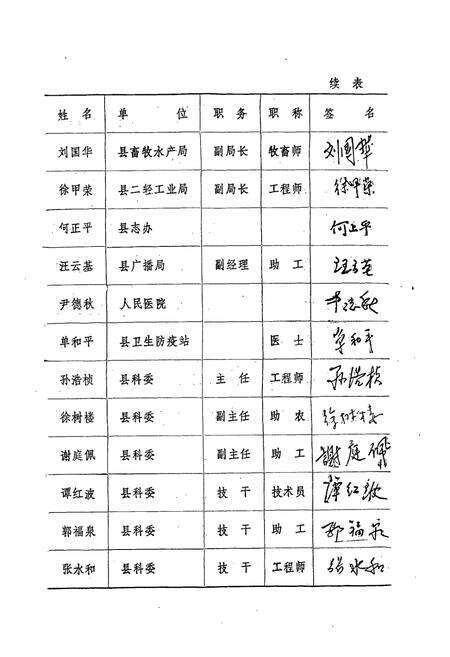 续表
姓名 单位 职务 职称 签名
刘国华 县畜牧水产局 副局长 牧畜师 刘国华
徐甲荣 县二轻工业局 副局长 工程师 徐甲荣
何正平 县志办 何正平
汪云基 县广播局 副经理 助工 汪云基
尹德秋 人民医院 尹德秋
单和平 县卫生防疫站 医士 单和平
孙浩桢 县科委 主任 工程师 孙浩桢
徐树楼 县科委 副主任 助农 徐树楼
谢庭佩 县科委 副主任 助工 謝庭佩
谭红波 县科委 技干 技术员 谭红波
郭福泉 县科委 技干 助工 郭福泉
张水和 县科委 技干 工程师 张水和